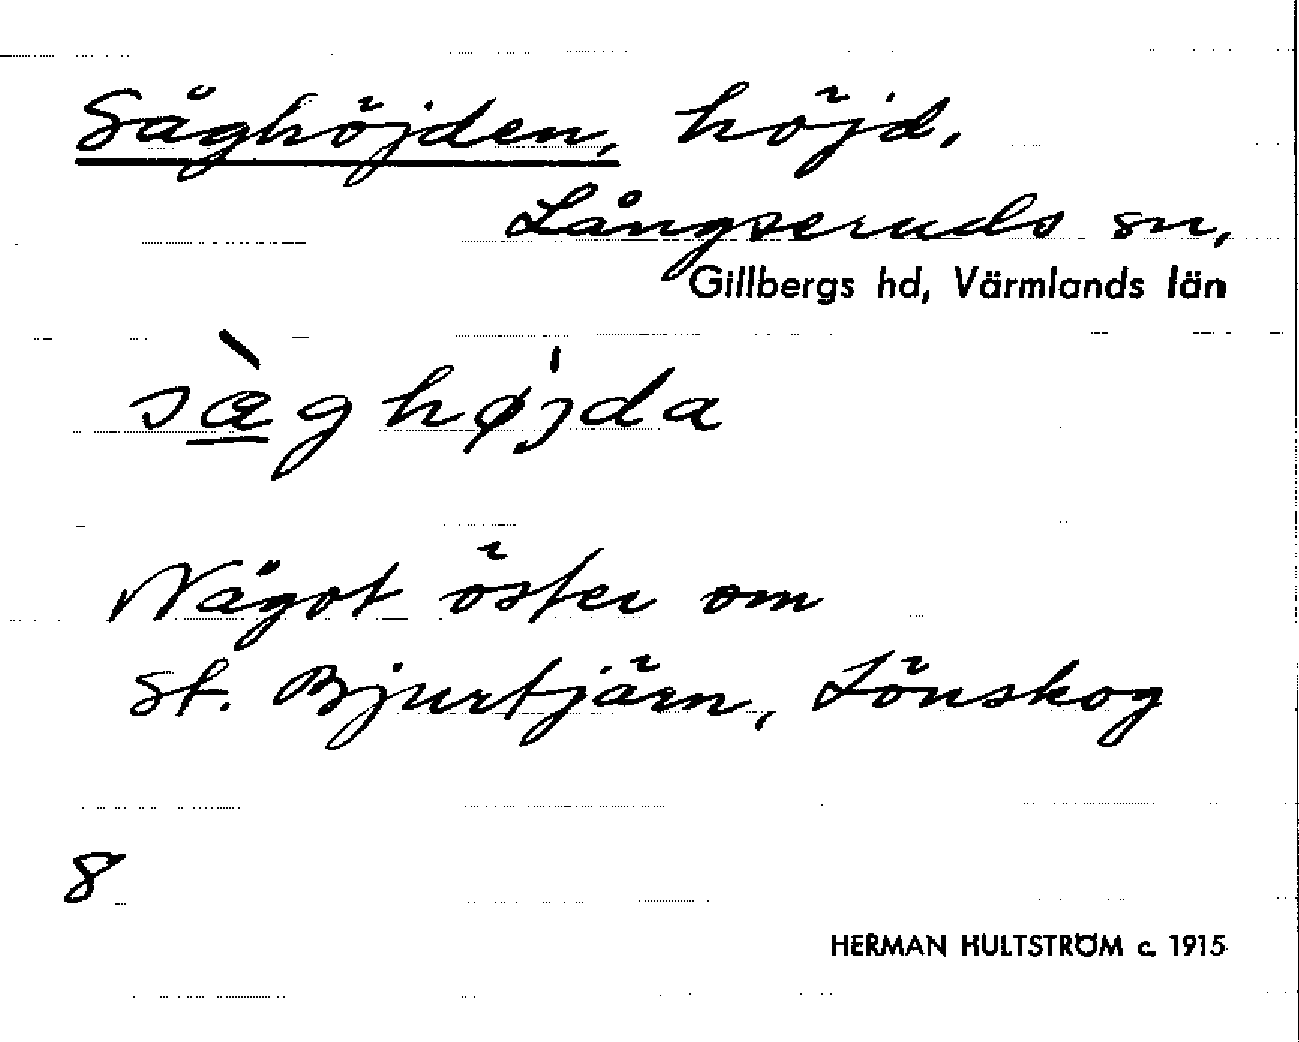 Såghöjden, höjd,
Långseruds sn,
Gillbergs hd, Värmlands län
sæ̀ghøjda
Något öster om
St. Bjurtjärn, Lönskog
8
HERMAN HULTSTRÖM c. 1915